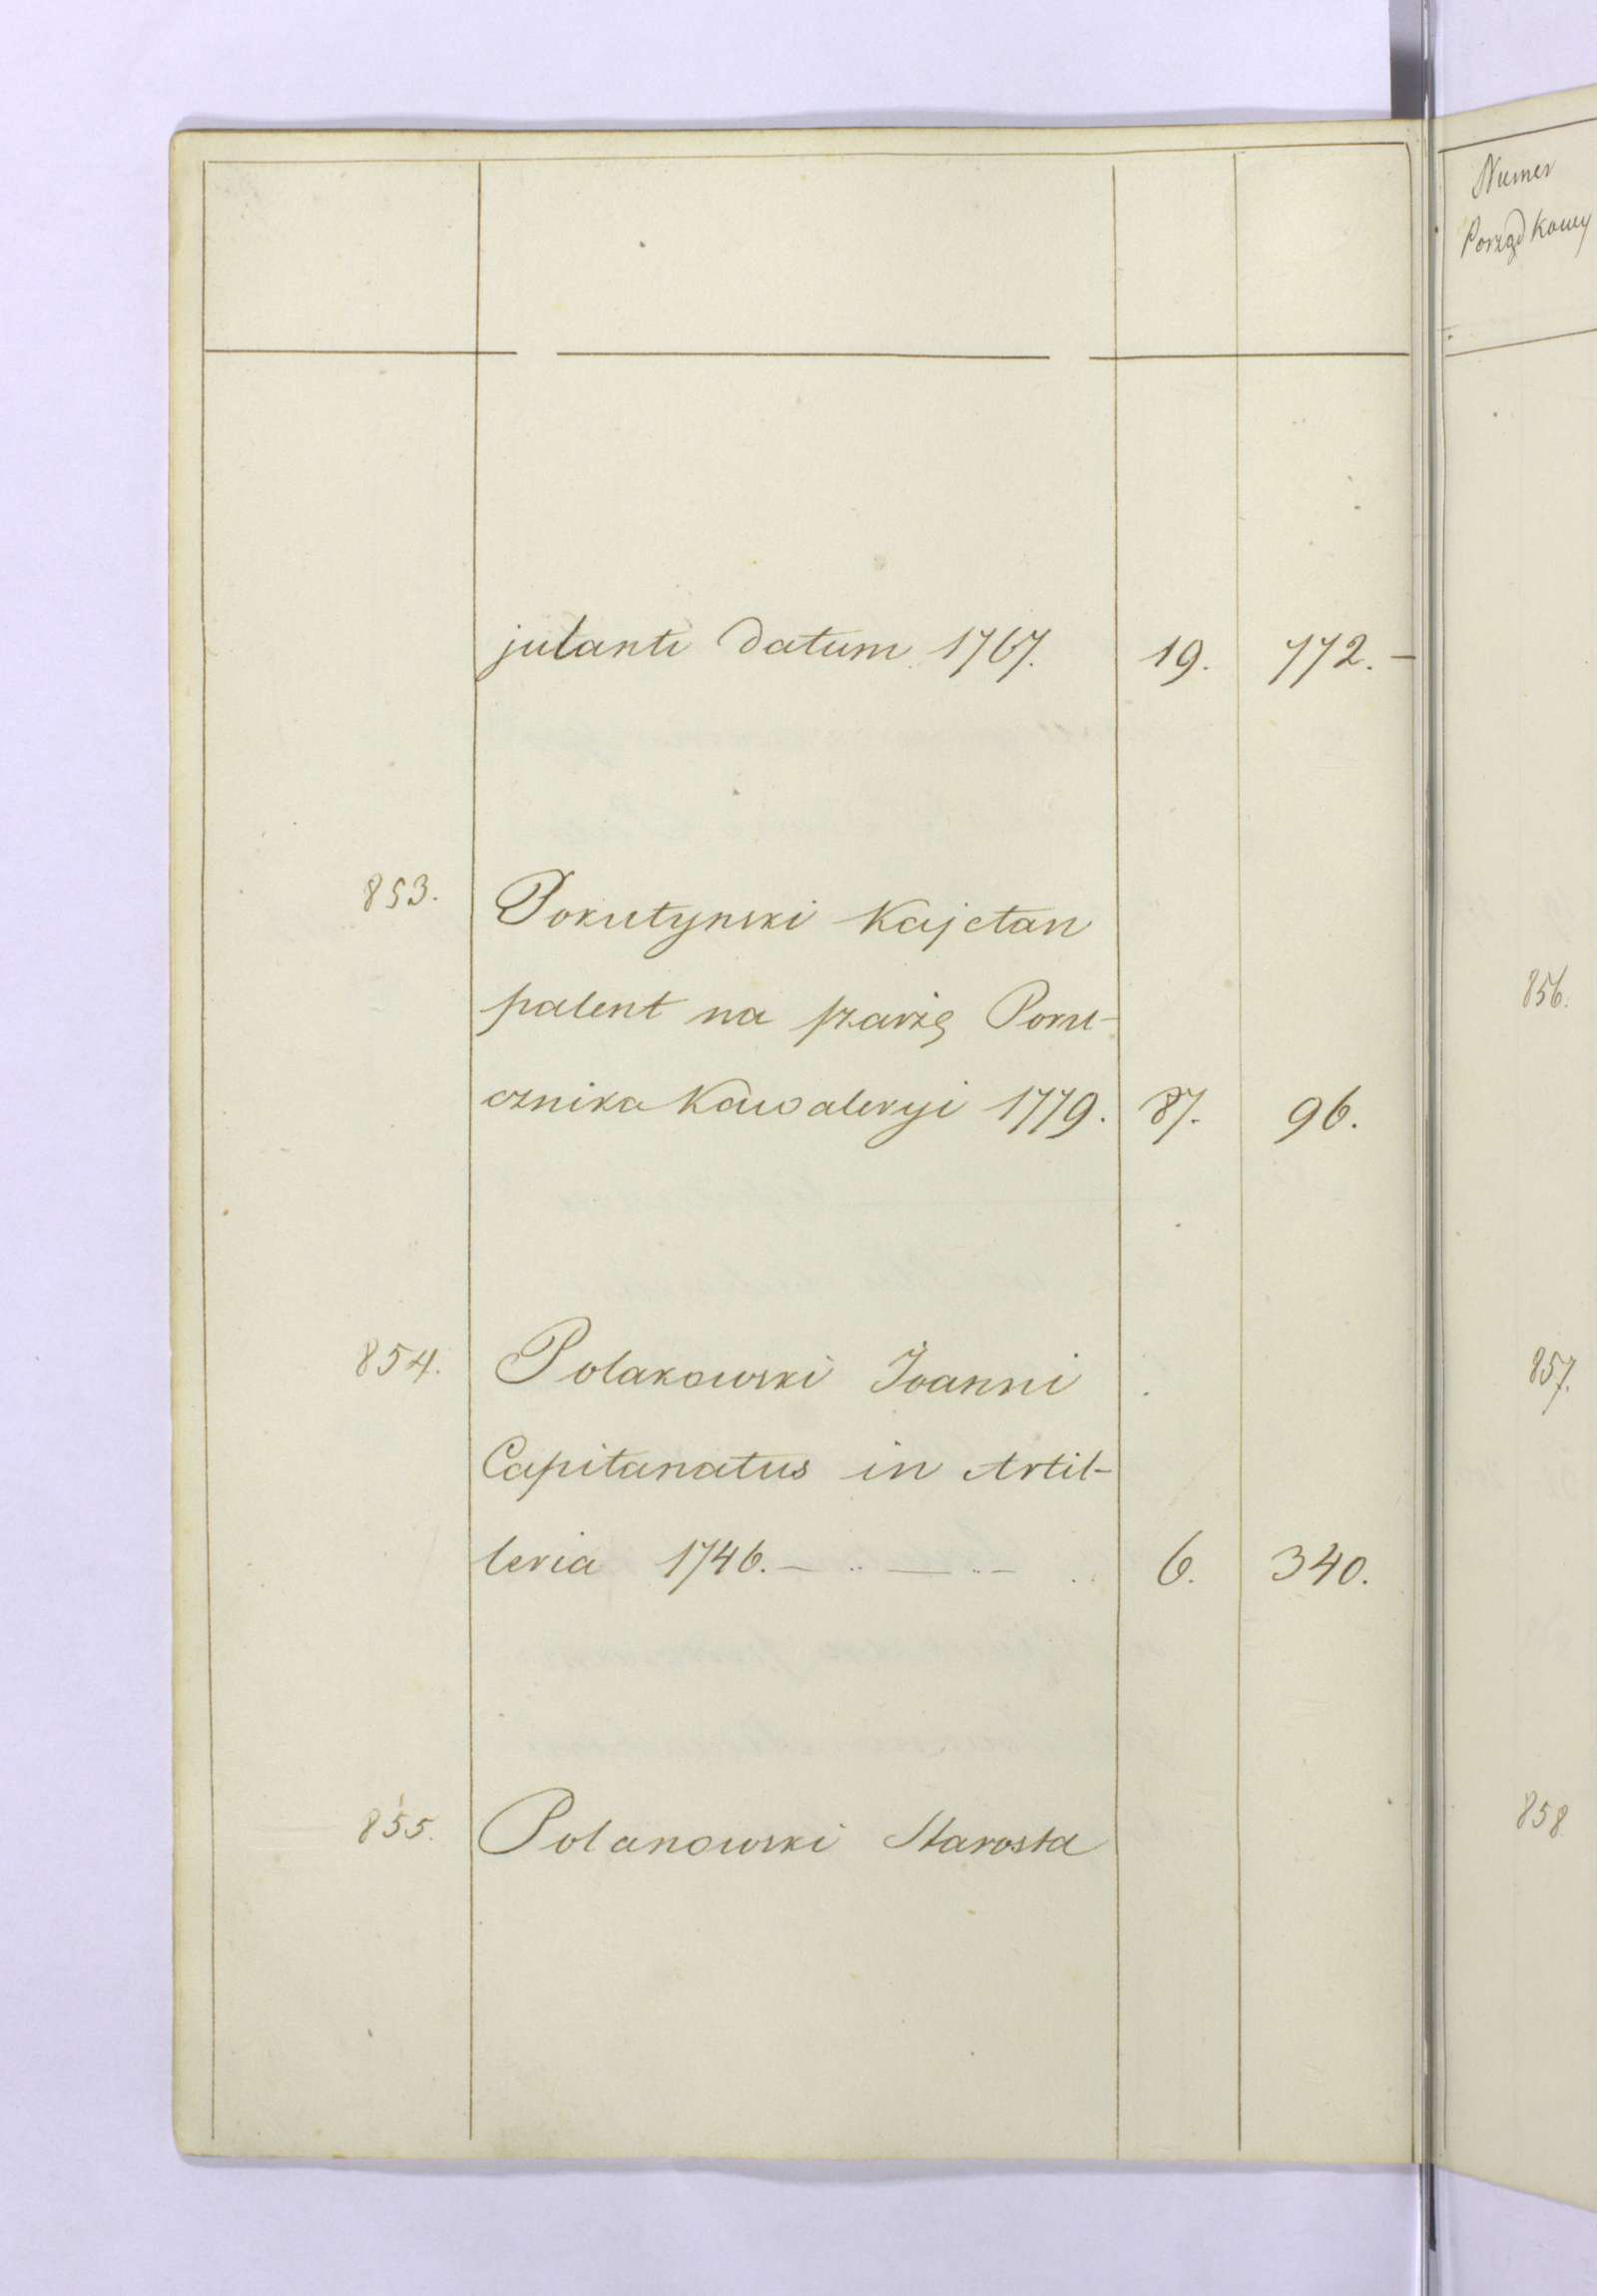 jutanti datum 1767. 19. 772. –
853. Pokutynski Kajetan
patent na szarżę Poru-
cznika Kawaleryi 1779. 87. 96.
854. Polakowski Joanni
Capitanatus in Artil-
leria 1746. – .. — .. – . 6. 340.
855. Polanowski Starosta
Numer
Porządkowy
856.
857.
858